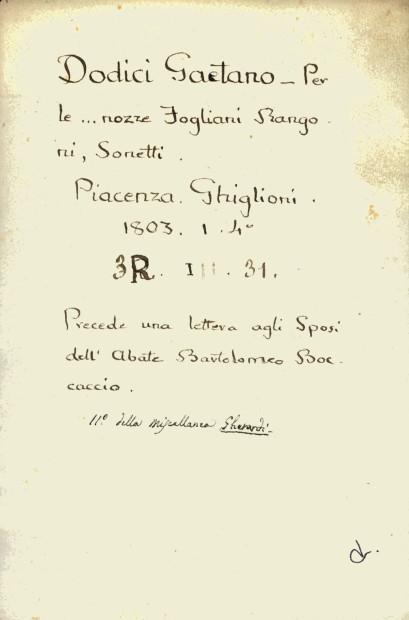 Dodici Gaetano – Per
le ... nozze Fogliani Rango-
ni, Sonetti.
Piacenza. Ghiglioni.
1803. 1. 4º
3R. III. 31.
Precede una lettera agli Sposi
dell' Abate Bartolomeo Boc-
caccio.
11º della Miscellanea Gherardi-